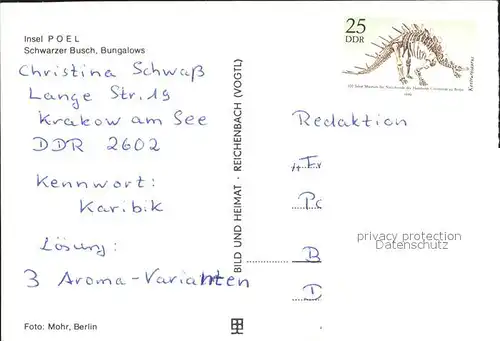 Insel POEL
Schwarzer Busch, Bungalows
Christina Schwaß
Lange Str. 19
Krakow am See
DDR 2602
Kennwort:
Karibik
Lösung:
3 Aroma-Varianten
Foto: Mohr, Berlin
BILD UND HEIMAT · REICHENBACH (VOGTL)
25
DDR
Kentrurosaurus
Redaktion
B
D
privacy protection
Datenschutz